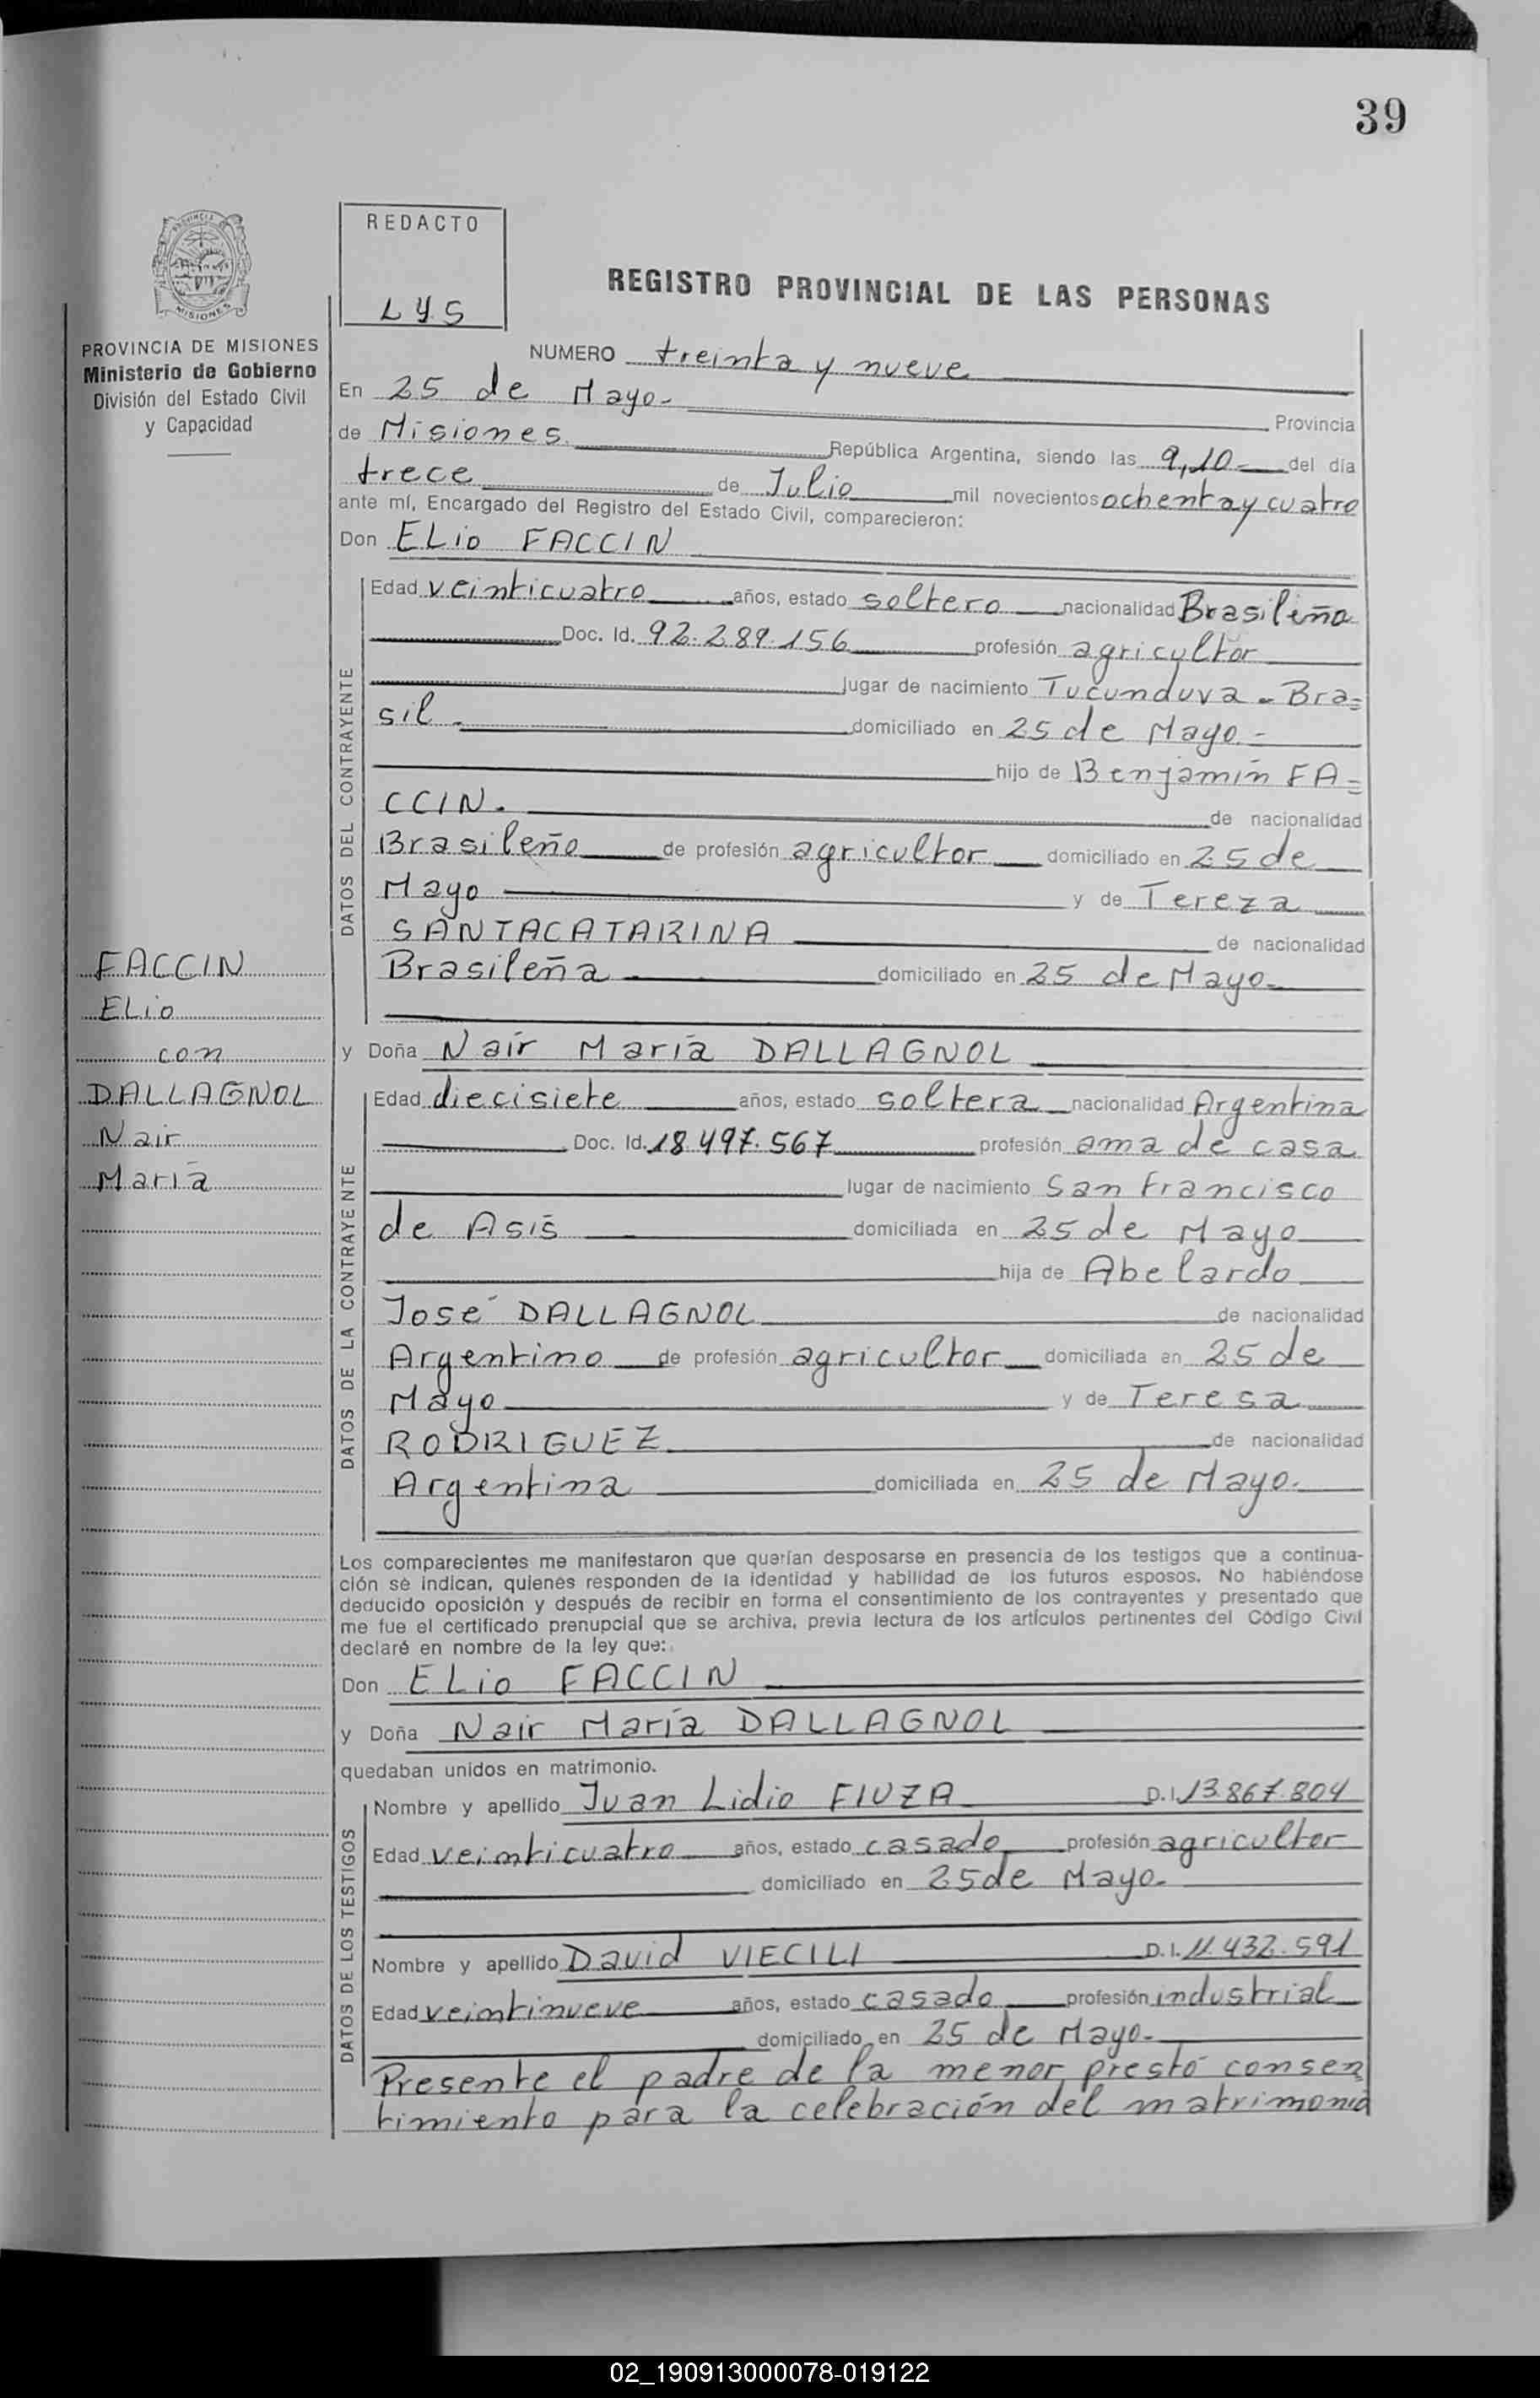 39
REDACTO
LYS
PROVINCIA DE MISIONES
Ministerio de Gobierno
División del Estado Civil
y Capacidad
REGISTRO PROVINCIAL DE LAS PERSONAS
NUMERO treinta y nueve
En 25 de Mayo- Provincia
de Misiones. República Argentina, siendo las 9,10- del día
trece de Julio mil novecientos ochenta y cuatro
ante mí, Encargado del Registro del Estado Civil, comparecieron:
Don ELio FACCIN
DATOS DEL CONTRAYENTE
Edad veinticuatro años, estado soltero nacionalidad Brasileña
Doc. Id. 92.289.156 profesión agricultor
lugar de nacimiento Tucunduva - Bra=
sil - domiciliado en 25 de Mayo.-
hijo de Benjamín FA=
CCIN. de nacionalidad
Brasileño de profesión agricultor domiciliado en 25 de
Mayo y de Tereza
SANTACATARINA de nacionalidad
Brasileña domiciliado en 25 de Mayo-
FACCIN
ELio
con
DALLAGNOL
Nair
María
y Doña Naír María DALLAGNOL
DATOS DE LA CONTRAYENTE
Edad diecisiete años, estado soltera nacionalidad Argentina
Doc. Id. 18.497.567 profesión ama de casa
lugar de nacimiento San Francisco
de Asís domiciliada en 25 de Mayo
hija de Abelardo
José DALLAGNOL de nacionalidad
Argentino de profesión agricultor domiciliada en 25 de
Mayo y de Teresa
RODRIGUEZ de nacionalidad
Argentina domiciliada en 25 de Mayo.
Los comparecientes me manifestaron que querían desposarse en presencia de los testigos que a continua-
ción se indican, quienes responden de la identidad y habilidad de los futuros esposos. No habiéndose
deducido oposición y después de recibir en forma el consentimiento de los contrayentes y presentado que
me fue el certificado prenupcial que se archiva, previa lectura de los artículos pertinentes del Código Civil
declaré en nombre de la ley que:
Don ELio FACCIN
y Doña Nair María DALLAGNOL
quedaban unidos en matrimonio.
DATOS DE LOS TESTIGOS
Nombre y apellido Juan Lidio FIUZA D.I. 13.867.804
Edad veinticuatro años, estado casado profesión agricultor
domiciliado en 25 de Mayo-
Nombre y apellido David VIECILI D.I. 11.432.591
Edad veintinueve años, estado casado profesión industrial
domiciliado en 25 de Mayo-
Presente el padre de la menor prestó consen
timiento para la celebración del matrimonio
02_190913000078-019122